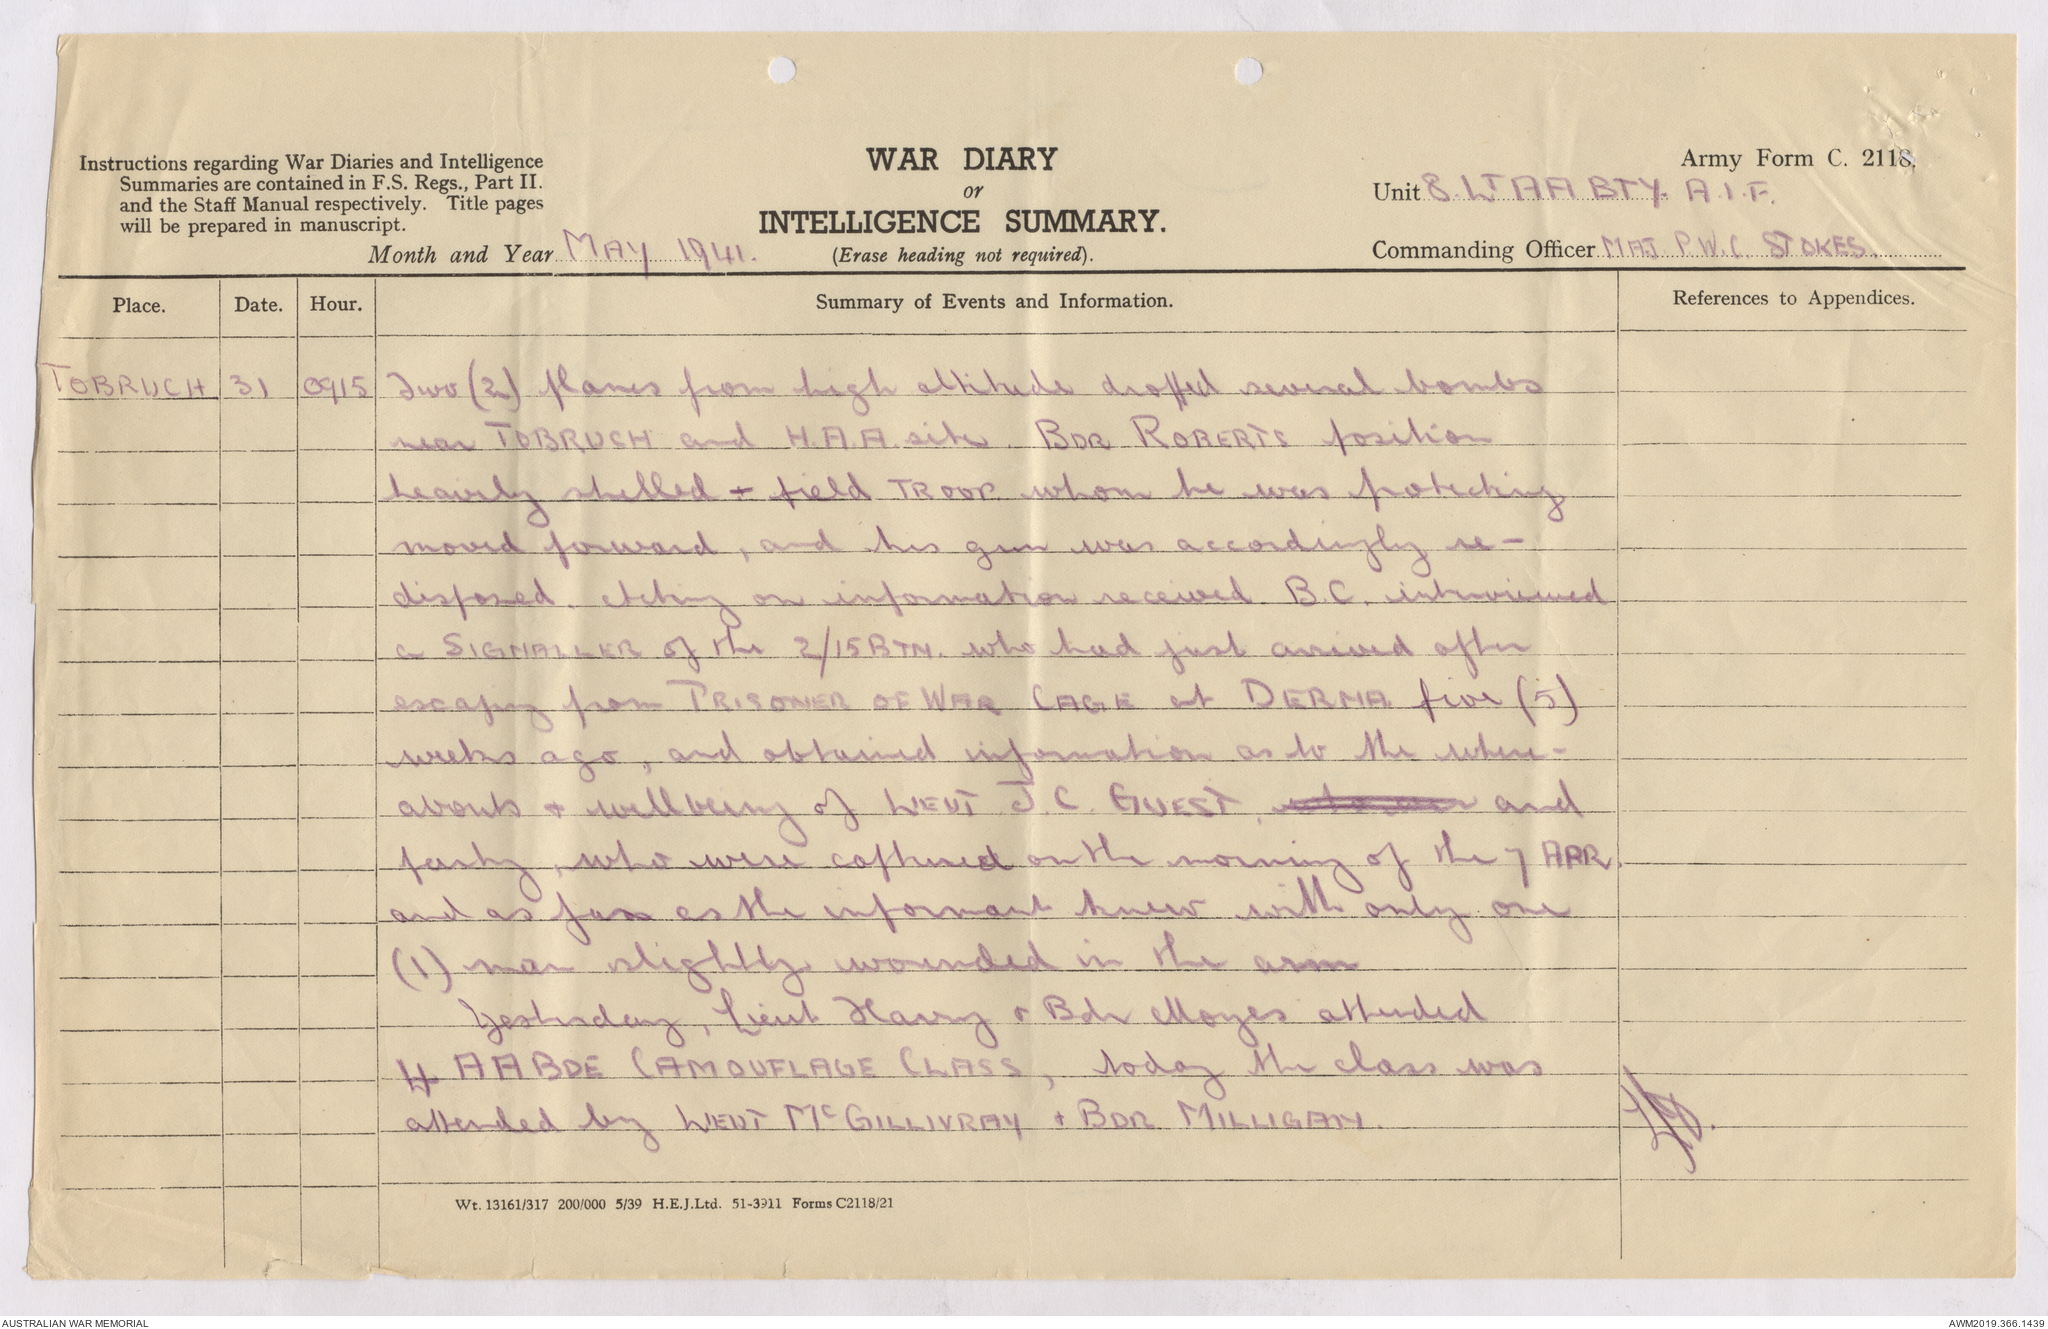 Instructions regarding War Diaries and Intelligence
Summaries are contained in F.S. Regs., Part II.
and the Staff Manual respectively. Title pages
will be prepared in manuscript.
Month and Year MAY 1941.
WAR DIARY
or
INTELLIGENCE SUMMARY.
(Erase heading not required).
Army Form C. 2118.
Unit 8 LT AA BTY. A.I.F.
Commanding Officer MAJ P.W.C. STOKES.
Place. Date. Hour. Summary of Events and Information. References to Appendices.
TOBRUCH 31 0915 Two (2) planes from high altitude dropped several bombs
near TOBRUCH and H.A.A. site. BDR ROBERTS position
heavily shelled + field TROOP whom he was protecting
moved forward, and his gun was accordingly re-
disposed. Acting on information received B.C. interviewed
a SIGNALLER of the 2/15 BTN. who had just arrived after
escaping from PRISONER OF WAR CAGE at DERNA five (5)
weeks ago, and obtained information as to the where-
abouts + wellbeing of LIEUT J.C. GUEST, and
party, who were captured on the morning of the 7 APR.
and as far as the informant knew with only one
(1) man slightly wounded in the arm
Yesterday, Lieut Harry + Bdr Moyes attended
4 AA BDE CAMOUFLAGE CLASS, today the class was
attended by LIEUT McGILLIVRAY + BDR MILLIGAN.
Wt. 13161/317 200/000 5/39 H.E.J.Ltd. 51-3911 Forms C2118/21
AUSTRALIAN WAR MEMORIAL
AWM2019.366.1439